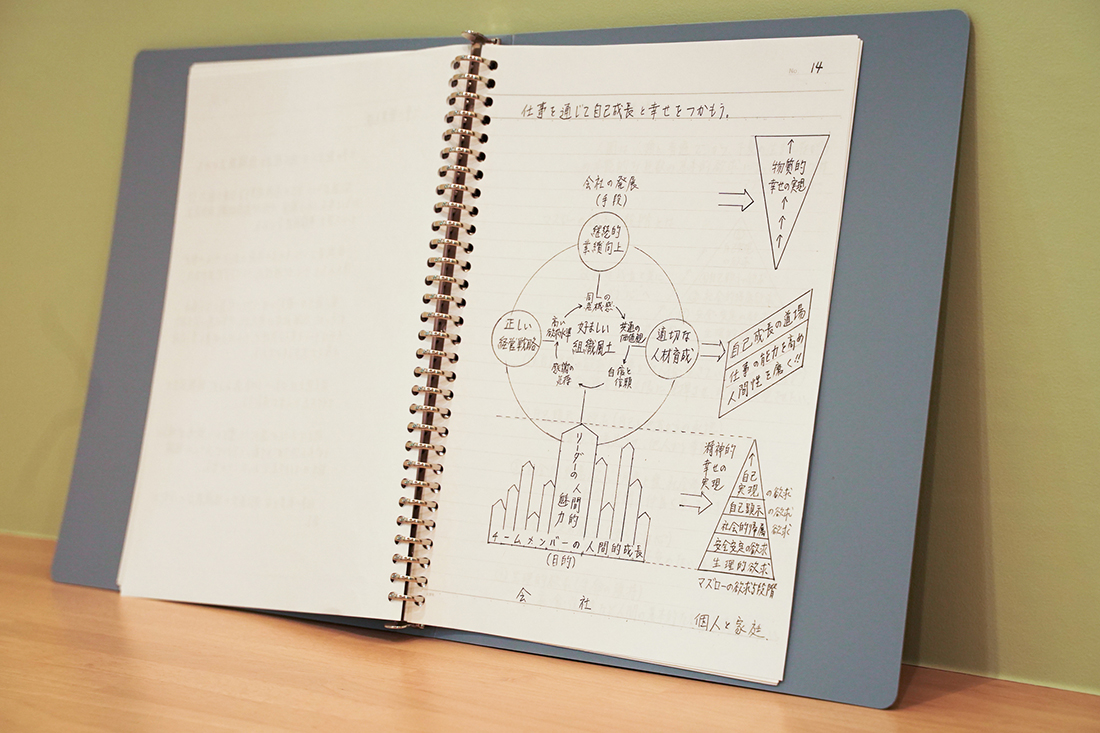 No. 14
仕事を通じて自己成長と幸せをつかもう。
会社の発展
(手段)
継続的
業績向上
↑
物質的
幸せの実現
↑
↑
↑
正しい
経営戦略
適切な
人材育成
同一の
危機感
高い
欲求水準
好ましい
組織風土
共通の
価値観
感情の
共有
自信と
信頼
自己成長の道場
仕事の能力を高め
人間性を磨く!!
リーダーの人間的
魅力
チームメンバーの人間的成長
(目的)
精神的
幸せの
実現
↑
自己
実現の欲求
自己顕示の欲求
社会的帰属欲求
安全安定の欲求
生理的欲求
マズローの欲求5段階
会社
個人と家庭